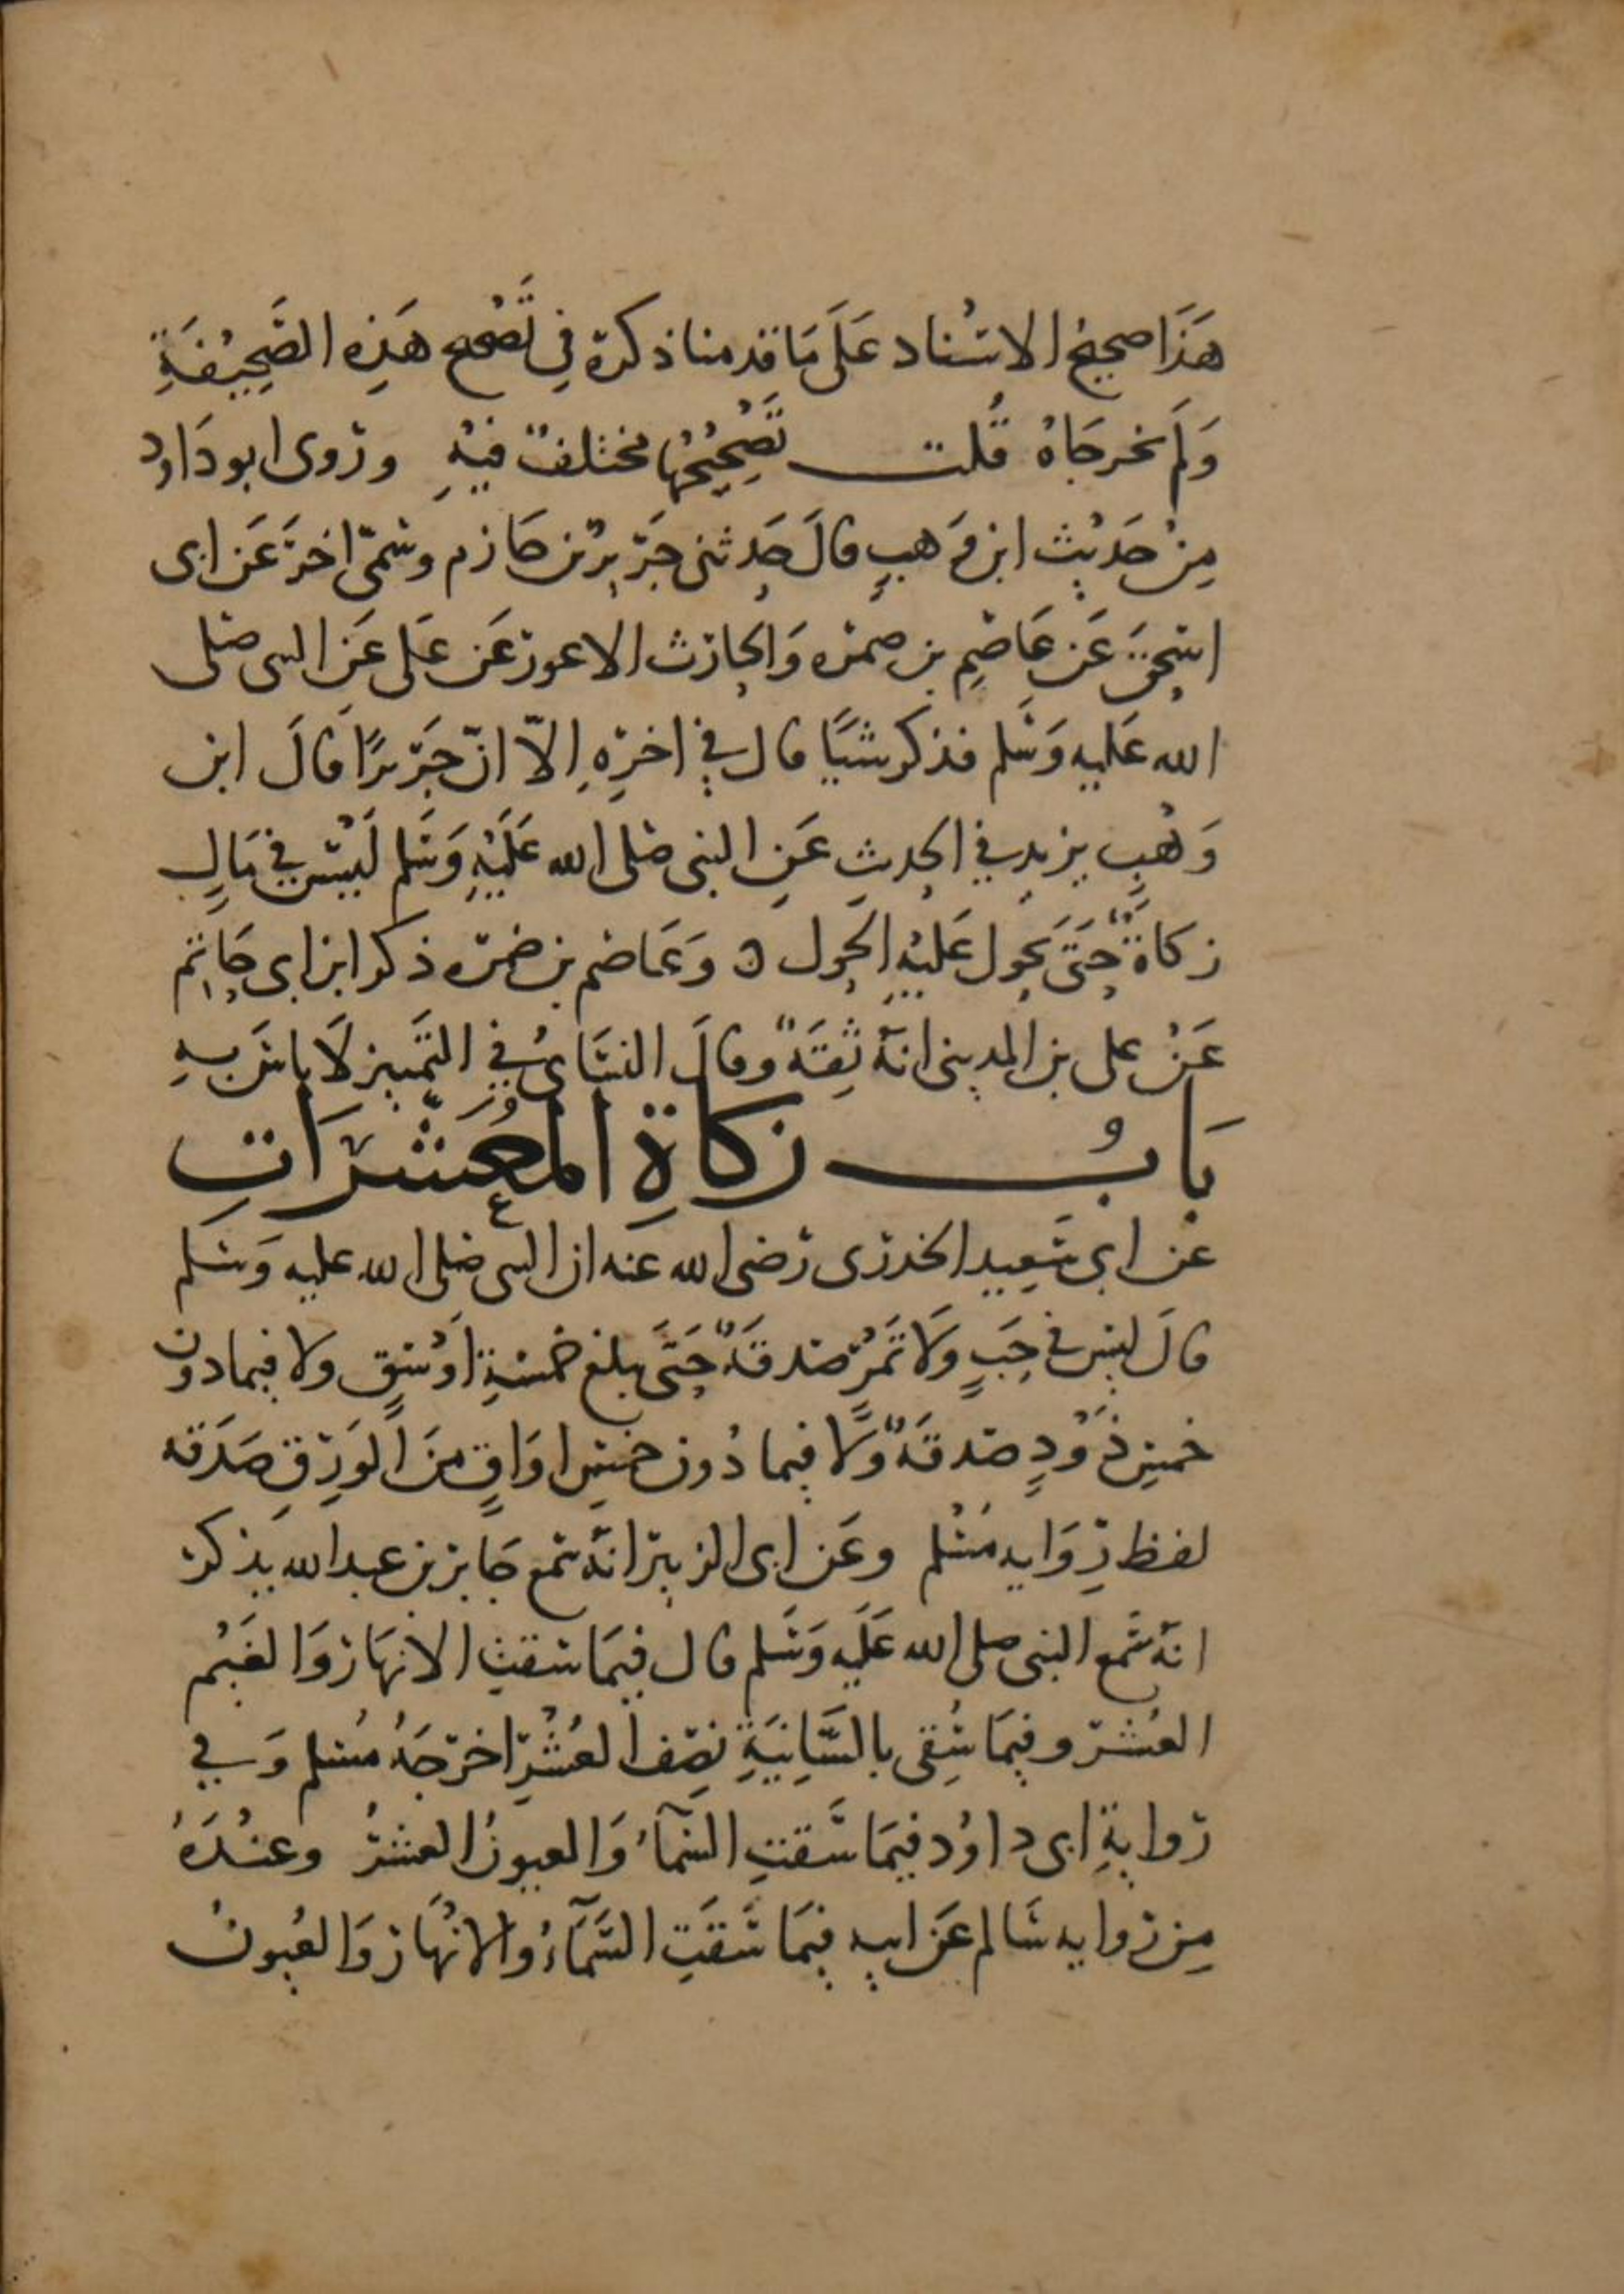 هَذَا صحيحُ الاسْناد عَلَى مَا قدمنا ذكره في تَصْحيح هَذِهِ الصَّحِيْفَةِ
وَلَم يخرجَاهُ قُلت تَصْحِيْحُهَا مختلفٌ فيْهِ وروى ابو دَاود
مِنْ حَدِيْثِ ابن وَهبٍ قالَ حَدثنى جَرِيرُ بن حَازم وسَمّى اخرَ عَن ابى
اسحقَ عَن عَاصِمِ بن ضمره وَالحارث الاعور عَن عَلى عَنِ النبى صلى
الله عَليه وَسَلم فذكر شيًا قال في اخرِهِ اِلّا انّ جَرِيرًا قالَ ابن
وَهْبٍ يزيد في الحديثِ عَنِ النبى صلى الله عَلَيْهِ وَسَلم لَيْسَ في مَالٍ
زكاةٌ حَتَّى يحول عَليْهِ الحَول ه وَعَاصم بن ضمره ذكر ابن ابى حَاتم
عَنْ على بن المدينى انهُ ثِقَةٌ وقالَ النسَاىُ في التَّمييز لَا باسَ بهِ
بَابُ زكاةِ المُعَشَّرَاتِ
عَنْ ابى سَعِيد الخدرى رضى الله عَنه ان النبى صلى الله عليه وَسَلم
قالَ ليسَ في حَبٍ وَلَا تَمْرٍ صَدقَةٌ حَتَّى يبلغ خمسةِ اَوْسُقٍ ولا فيما دون
خمسِ ذَوْدٍ صَدقَةٌ وَلَا فيما دُون خمسِ اوَاقٍ مِنَ الوَرِقِ صَدَقه
لفظ رِوَايه مُسْلم وعَن ابى الزبير انهُ سَمع جَابر بن عبد الله يذكر
انهُ سَمع النبى صلى الله عَلَيه وَسَلم قال فيمَا سقتِ الانهَار وَالغَيْم
العُشر وفيمَا سُقِى بالسَّانِيَةِ نِصْف العُشْرِ اخرَجَهُ مُسلم وَفي
روايةِ ابى داوُد فيمَا سَقتِ السّمآءُ وَالعيونُ العشرُ وعنْدَهُ
مِن روايه سَالم عَن ابيه فيمَا سَقَتِ السَّمَآءُ والانْهَار وَالعُيونُ